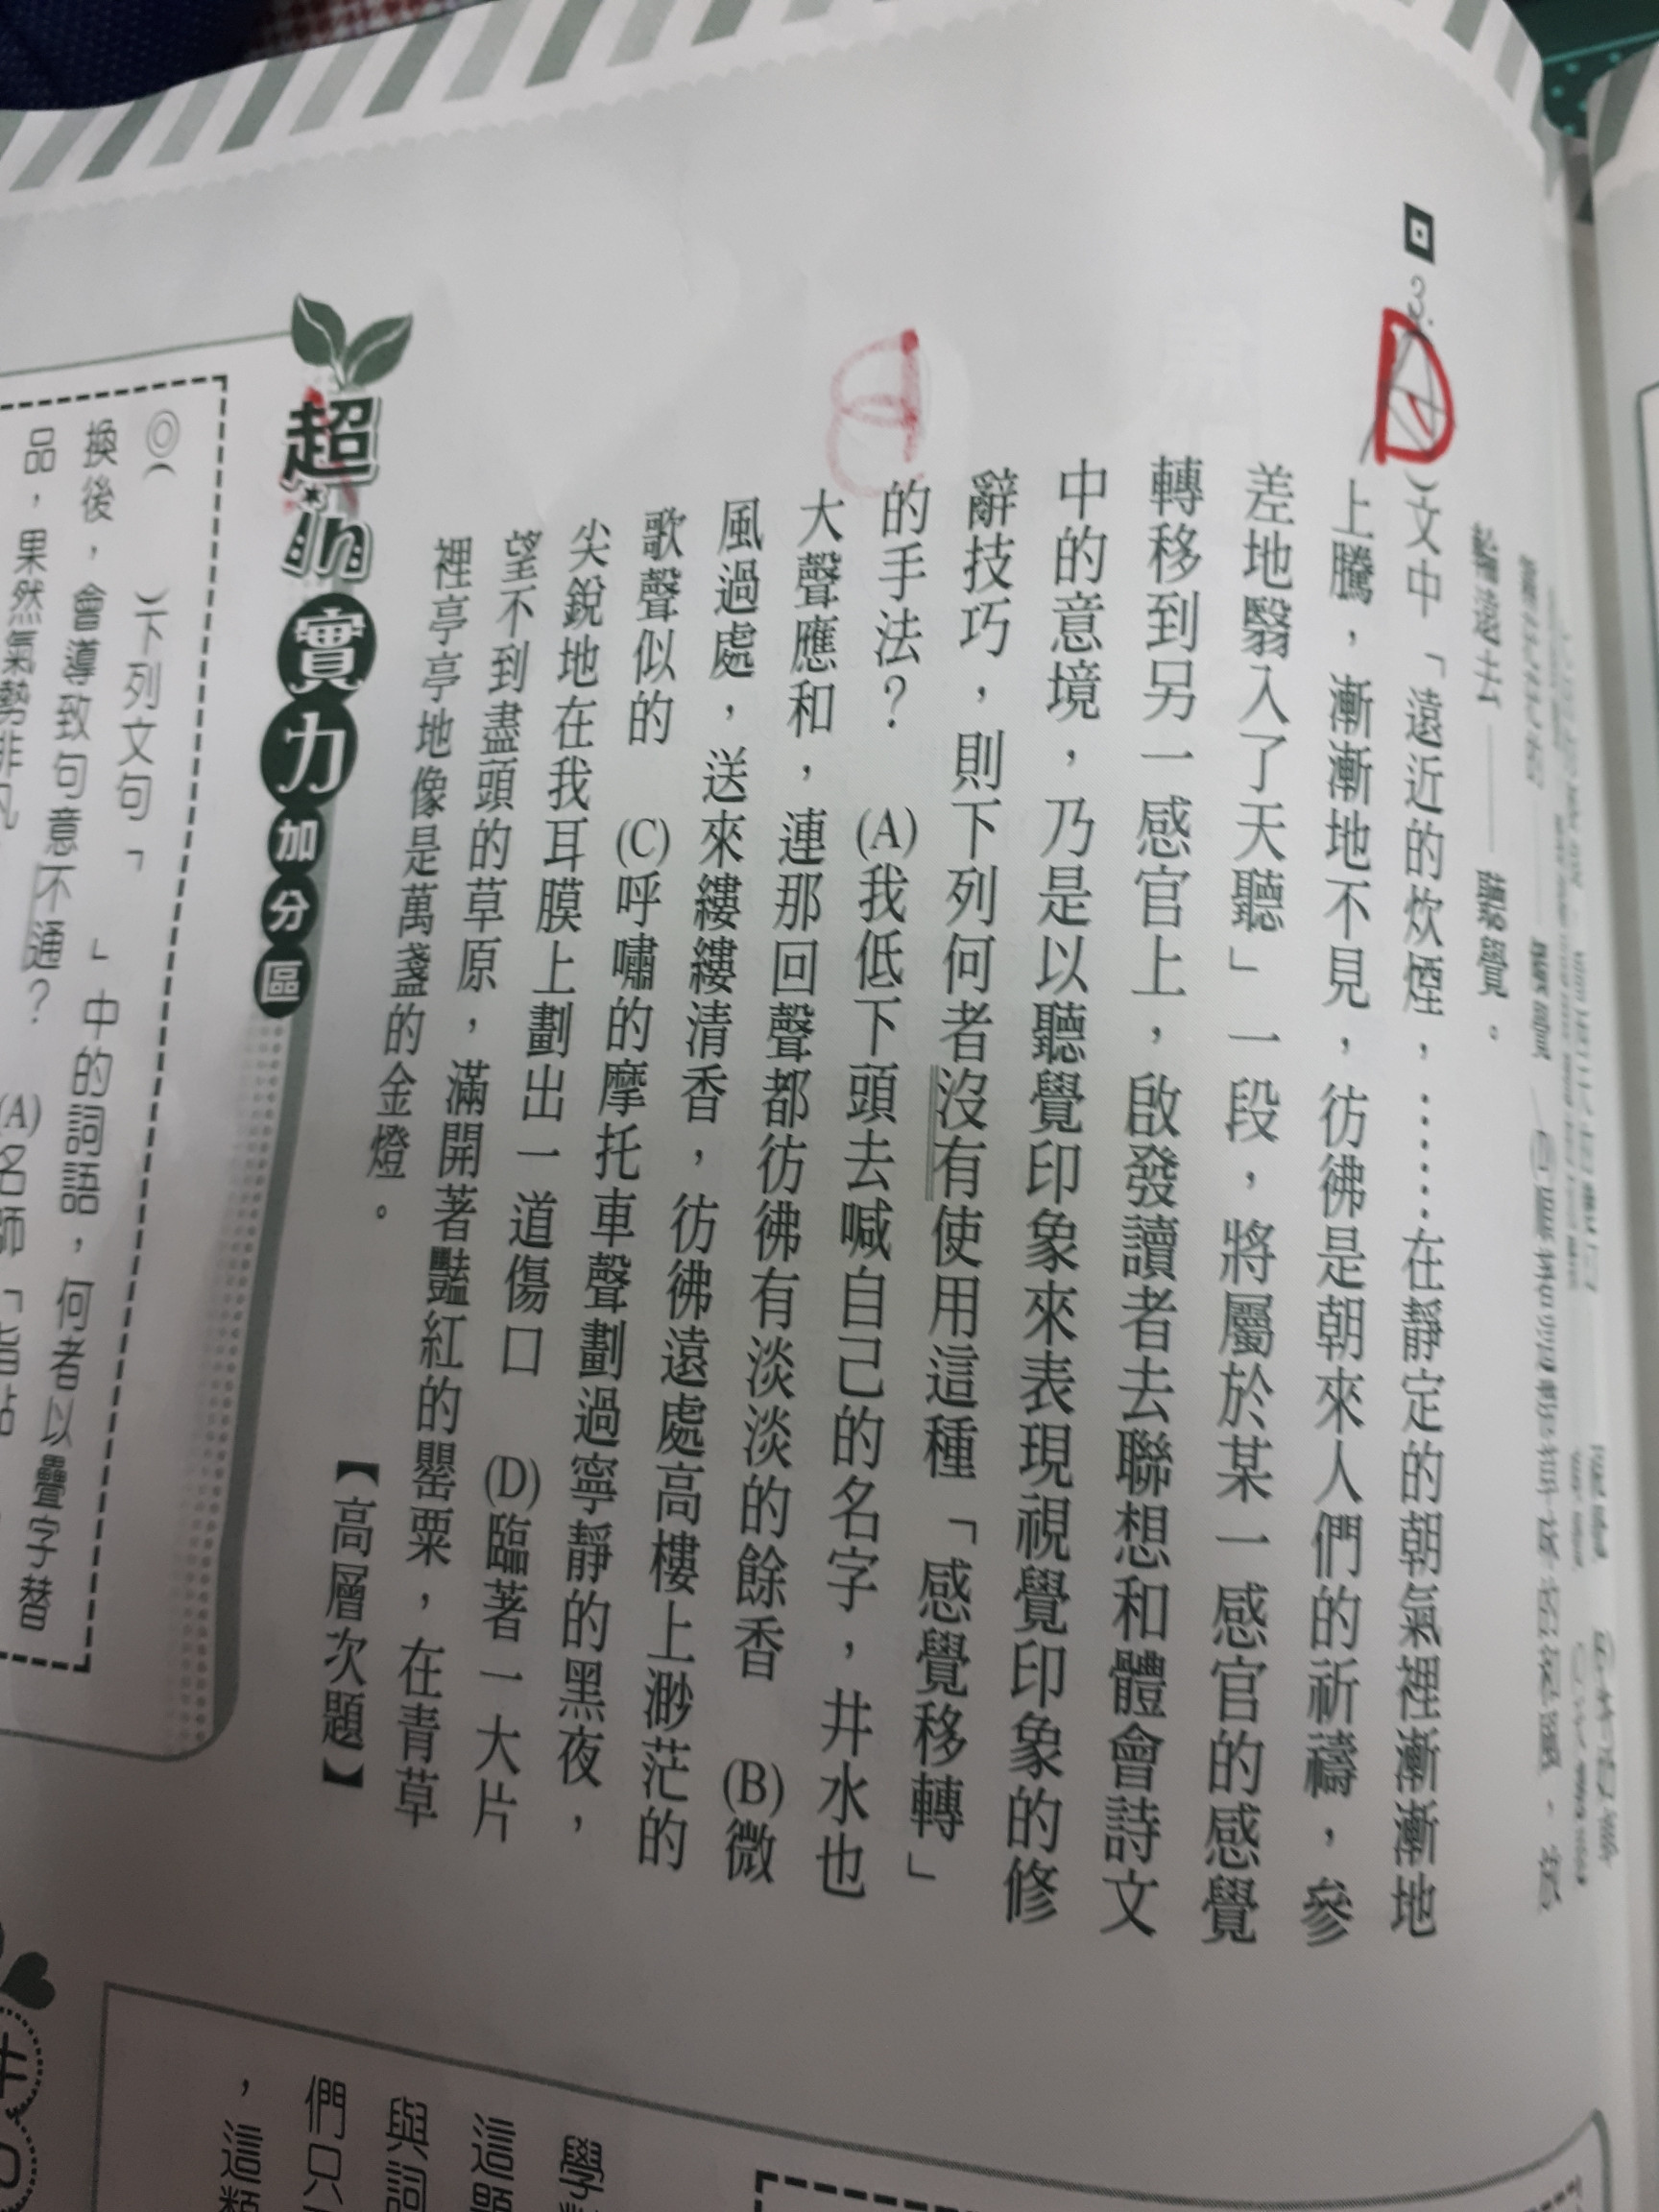 輪遠去──聽覺。
3.
D
）文中「遠近的炊煙，……在靜定的朝氣裡漸漸地
上騰，漸漸地不見，彷彿是朝來人們的祈禱，參
差地翳入了天聽」一段，將屬於某一感官的感覺
轉移到另一感官上，啟發讀者去聯想和體會詩文
中的意境，乃是以聽覺印象來表現視覺印象的修
辭技巧，則下列何者沒有使用這種「感覺移轉」
的手法？　(A)我低下頭去喊自己的名字，井水也
大聲應和，連那回聲都彷彿有淡淡的餘香　(B)微
風過處，送來縷縷清香，彷彿遠處高樓上渺茫的
歌聲似的　(C)呼嘯的摩托車聲劃過寧靜的黑夜，
尖銳地在我耳膜上劃出一道傷口　(D)臨著一大片
望不到盡頭的草原，滿開著豔紅的罌粟，在青草
裡亭亭地像是萬盞的金燈。
【高層次題】
超in實力加分區
◎（　　）下列文句「　　」中的詞語，何者以疊字替
換後，會導致句意不通？　(A)名師「指點
品，果然氣勢非凡
學
這題
與詞
們只
，這類